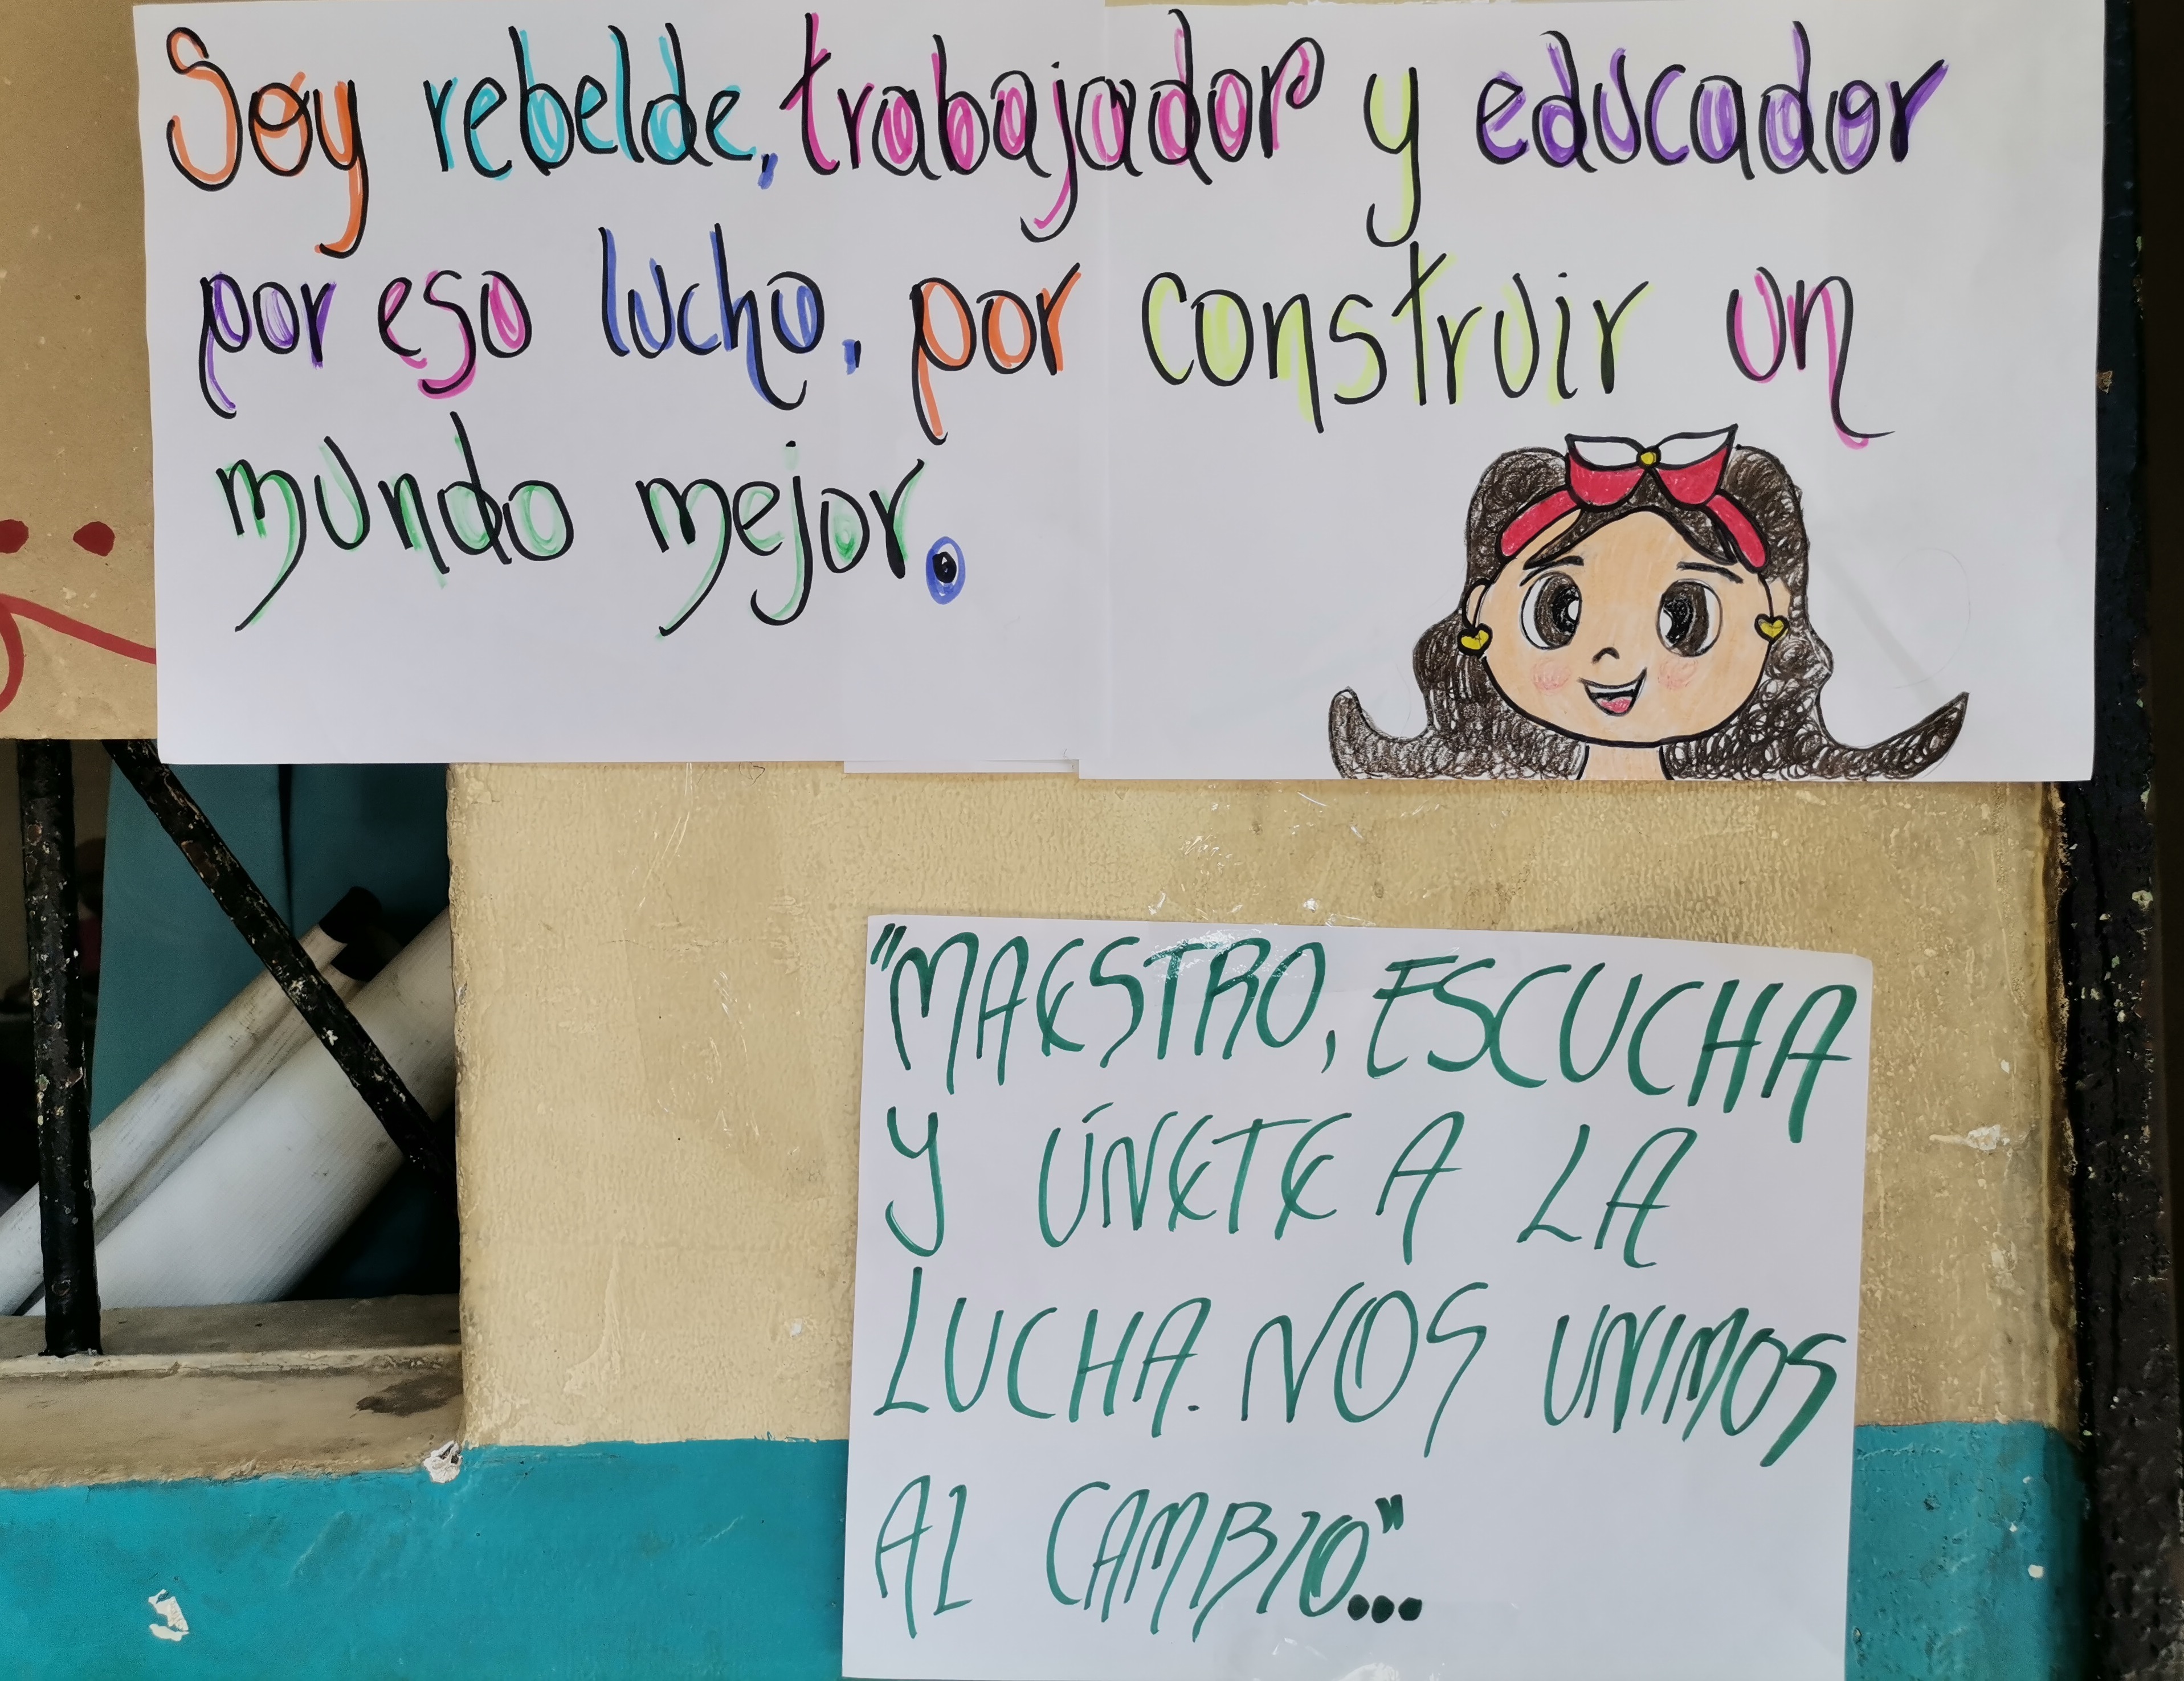 Soy rebelde, trabajador y educador
por eso lucho, por construir un
mundo mejor.
"MAESTRO, ESCUCHA
Y ÚNETE A LA
LUCHA. NOS UNIMOS
AL CAMBIO"...